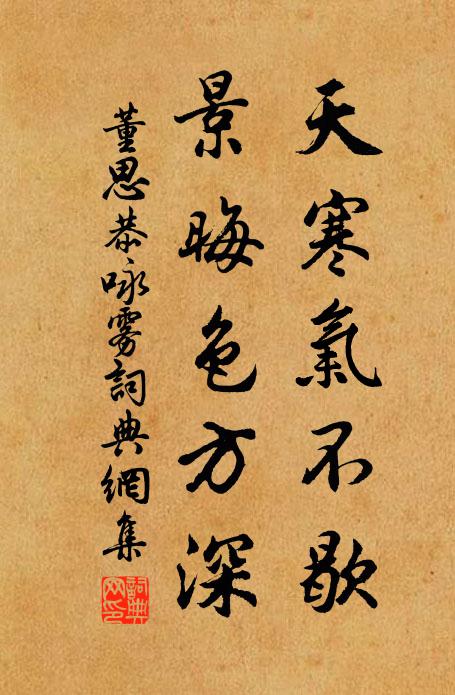 天寒氣不歇
景晦色方深
董思恭咏雾詞典網集
詞典
网印